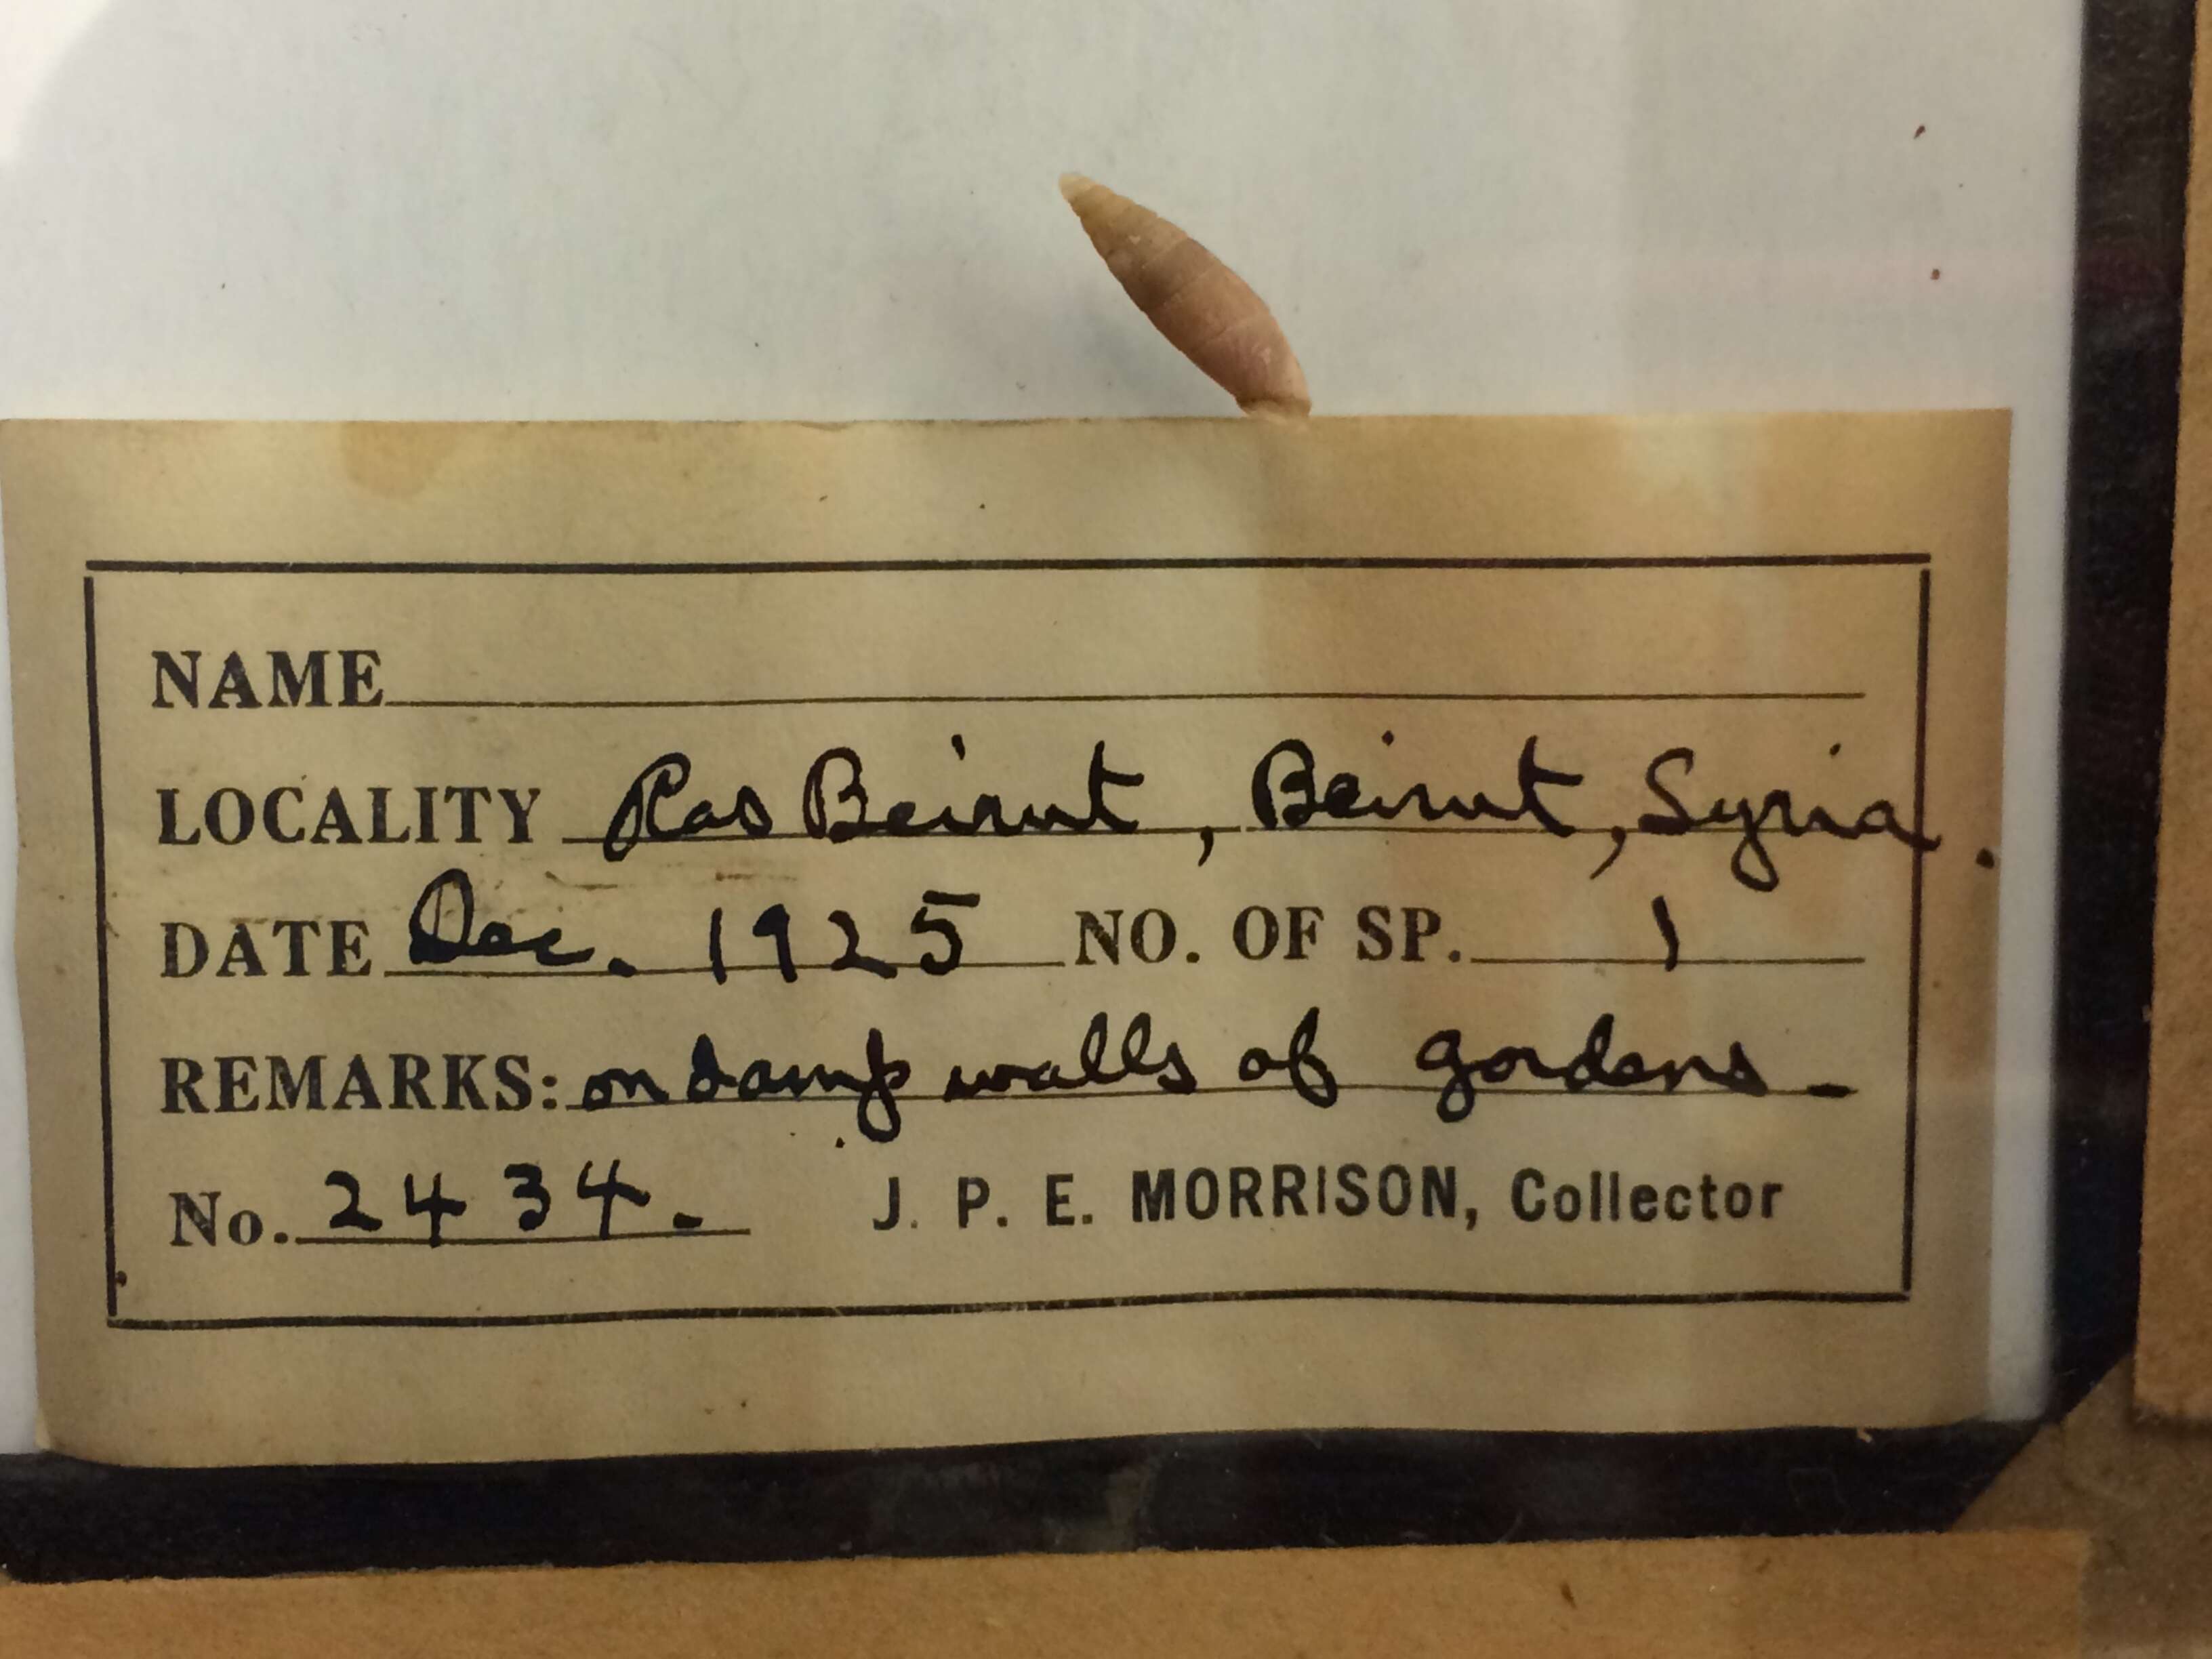 NAME
LOCALITY Ras Beirut, Beirut, Syria.
DATE Dec. 1925 NO. OF SP. 1
REMARKS: on damp walls of gardens -
No. 2434. J. P. E. MORRISON, Collector